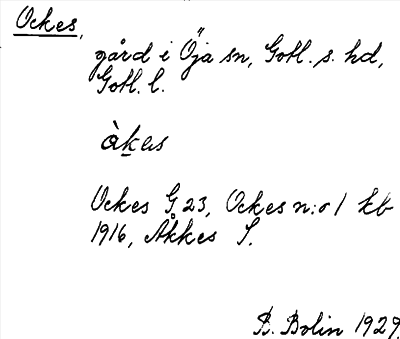 Ockes,
gård i Öja sn, Gotl. s. hd,
Gotl. l.
àkas
Ockes G 23, Ockes n:o 1 kb
1916, Åkkes S.
B. Bolin 1929.